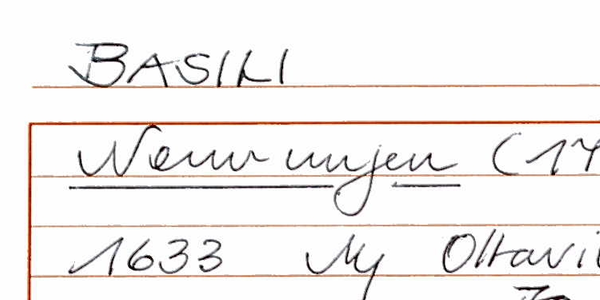 BASILI
Nennungen (17
1633 My Ottavi